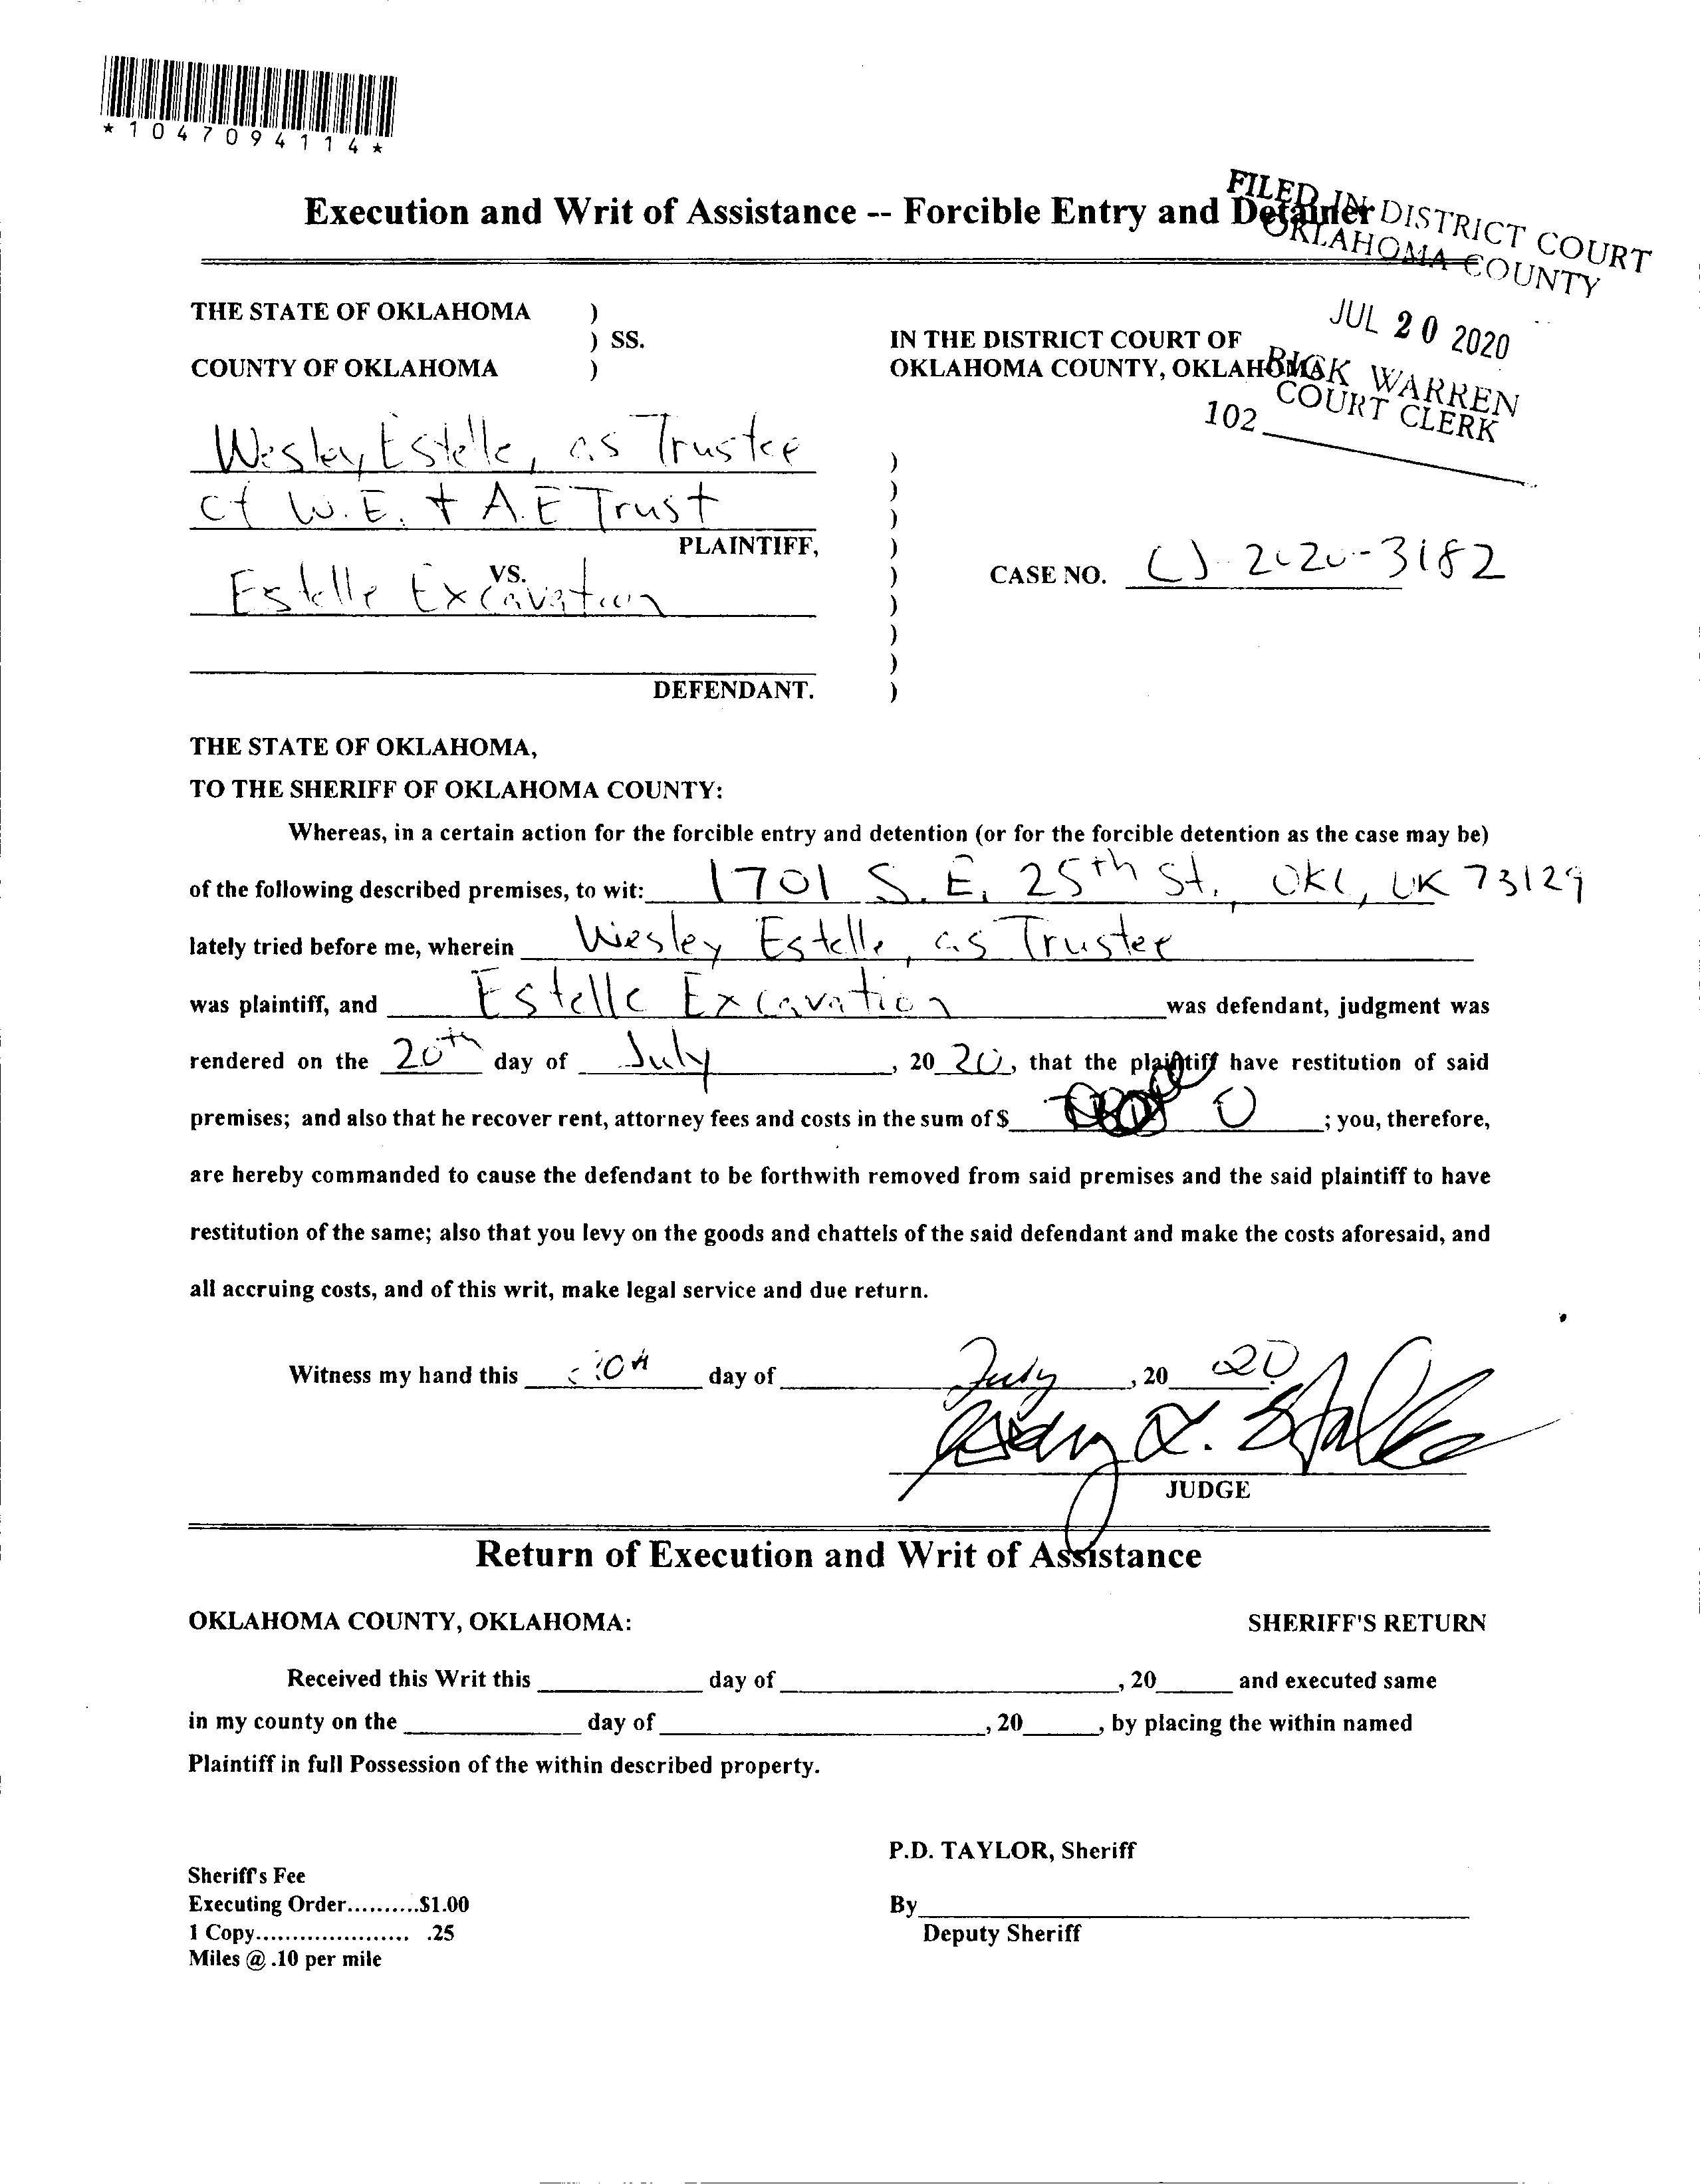 *1047094114*
Execution and Writ of Assistance -- Forcible Entry and Detainer
FILED IN DISTRICT COURT
OKLAHOMA COUNTY
JUL 20 2020
RICK WARREN
COURT CLERK
102
THE STATE OF OKLAHOMA )
) SS.
COUNTY OF OKLAHOMA )
IN THE DISTRICT COURT OF
OKLAHOMA COUNTY, OKLAHOMA
Wesley Estelle, as Trustee )
of W.E. + A.E Trust )
PLAINTIFF, )
VS.
Estelle Excavation )
CASE NO. CJ-2020-3182
DEFENDANT. )
THE STATE OF OKLAHOMA,
TO THE SHERIFF OF OKLAHOMA COUNTY:
Whereas, in a certain action for the forcible entry and detention (or for the forcible detention as the case may be)
of the following described premises, to wit: 1701 S.E. 25th St., OKC, OK 73129
lately tried before me, wherein Wesley Estelle, as Trustee
was plaintiff, and Estelle Excavation was defendant, judgment was
rendered on the 20th day of July, 20 20, that the plaintiff have restitution of said
premises; and also that he recover rent, attorney fees and costs in the sum of $ 0 ; you, therefore,
are hereby commanded to cause the defendant to be forthwith removed from said premises and the said plaintiff to have
restitution of the same; also that you levy on the goods and chattels of the said defendant and make the costs aforesaid, and
all accruing costs, and of this writ, make legal service and due return.
Witness my hand this 20th day of July, 20 20
JUDGE
Return of Execution and Writ of Assistance
OKLAHOMA COUNTY, OKLAHOMA: SHERIFF'S RETURN
Received this Writ this ______ day of ______, 20____ and executed same
in my county on the ______ day of ______, 20____, by placing the within named
Plaintiff in full Possession of the within described property.
P.D. TAYLOR, Sheriff
Sheriff's Fee
Executing Order..........$1.00
By______
1 Copy..................... .25
Deputy Sheriff
Miles @ .10 per mile